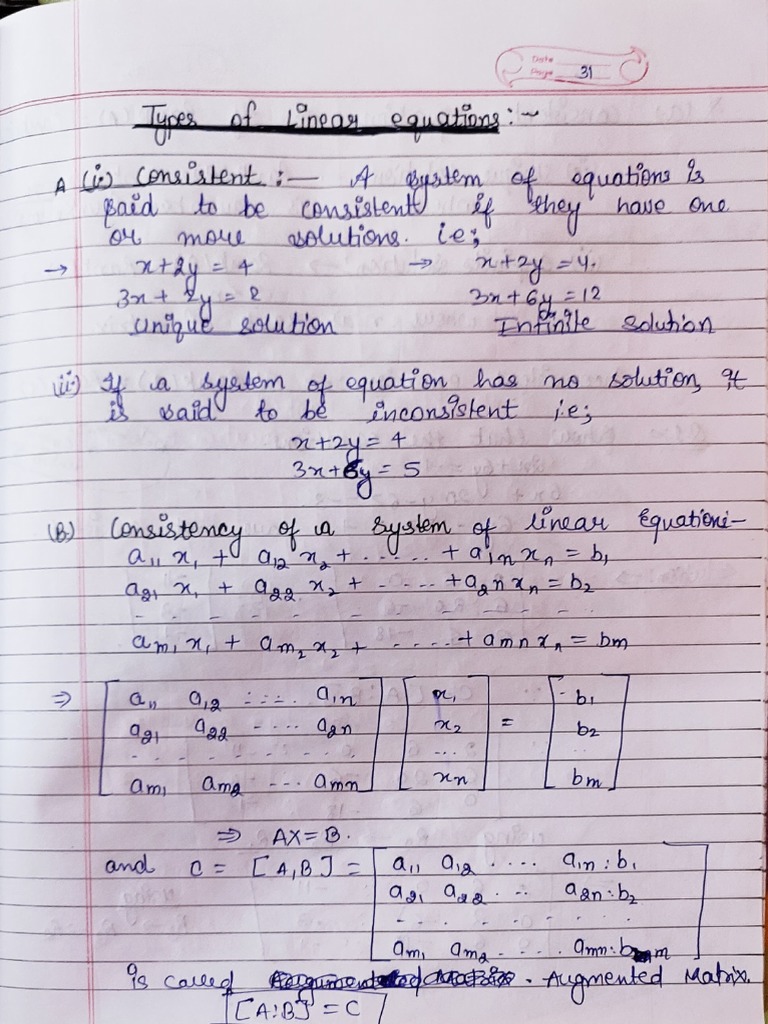 Date
Page 31
Types of Linear equations :-
A (i) Consistent :- A system of equations is
said to be consistent if they have one
or more solutions. i.e;
→ x+2y = 4 → x+2y = 4.
3x+2y = 2 3x+6y = 12
unique solution Infinite solution
(ii) If a system of equation has no solution, it
is said to be inconsistent i.e;
x+2y = 4
3x+6y = 5
(B) Consistency of a system of linear Equation:-
a₁₁ x₁ + a₁₂ x₂ + ..... + a₁n xn = b₁
a₂₁ x₁ + a₂₂ x₂ + ..... + a₂n xn = b₂
- - - - - - - - - - - -
am₁ x₁ + am₂ x₂ + ..... + amn xn = bm
⇒ [ a₁₁ a₁₂ .... a₁n ] [ x₁ ] = [ b₁ ]
a₂₁ a₂₂ .... a₂n x₂ b₂
- - - - - - - - - ... ..
am₁ am₂ ... amn xn bm
⇒ AX = B.
and C = [A,B] = [ a₁₁ a₁₂ .... a₁n : b₁ ]
a₂₁ a₂₂ ... a₂n : b₂
- - - - - - - - -
am₁ am₂ .... amn : bm
is called Augmented Matrix.
[A:B] = C